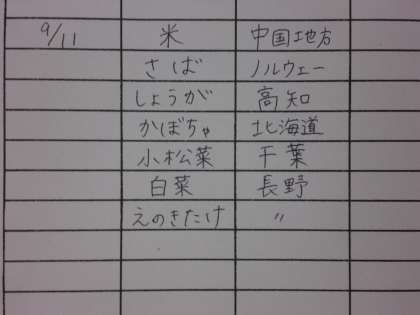 9/11 米 中国地方
さば ノルウェー
しょうが 高知
かぼちゃ 北海道
小松菜 千葉
白菜 長野
えのきたけ 〃